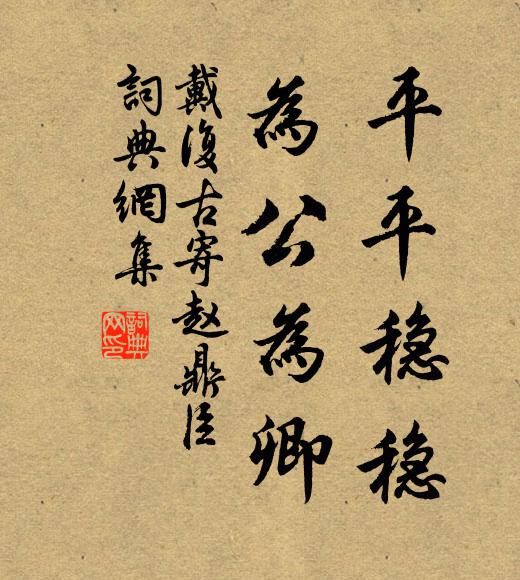 平平稳稳
為公為卿
戴復古寄赵鼎臣
詞典網集
詞典
网印